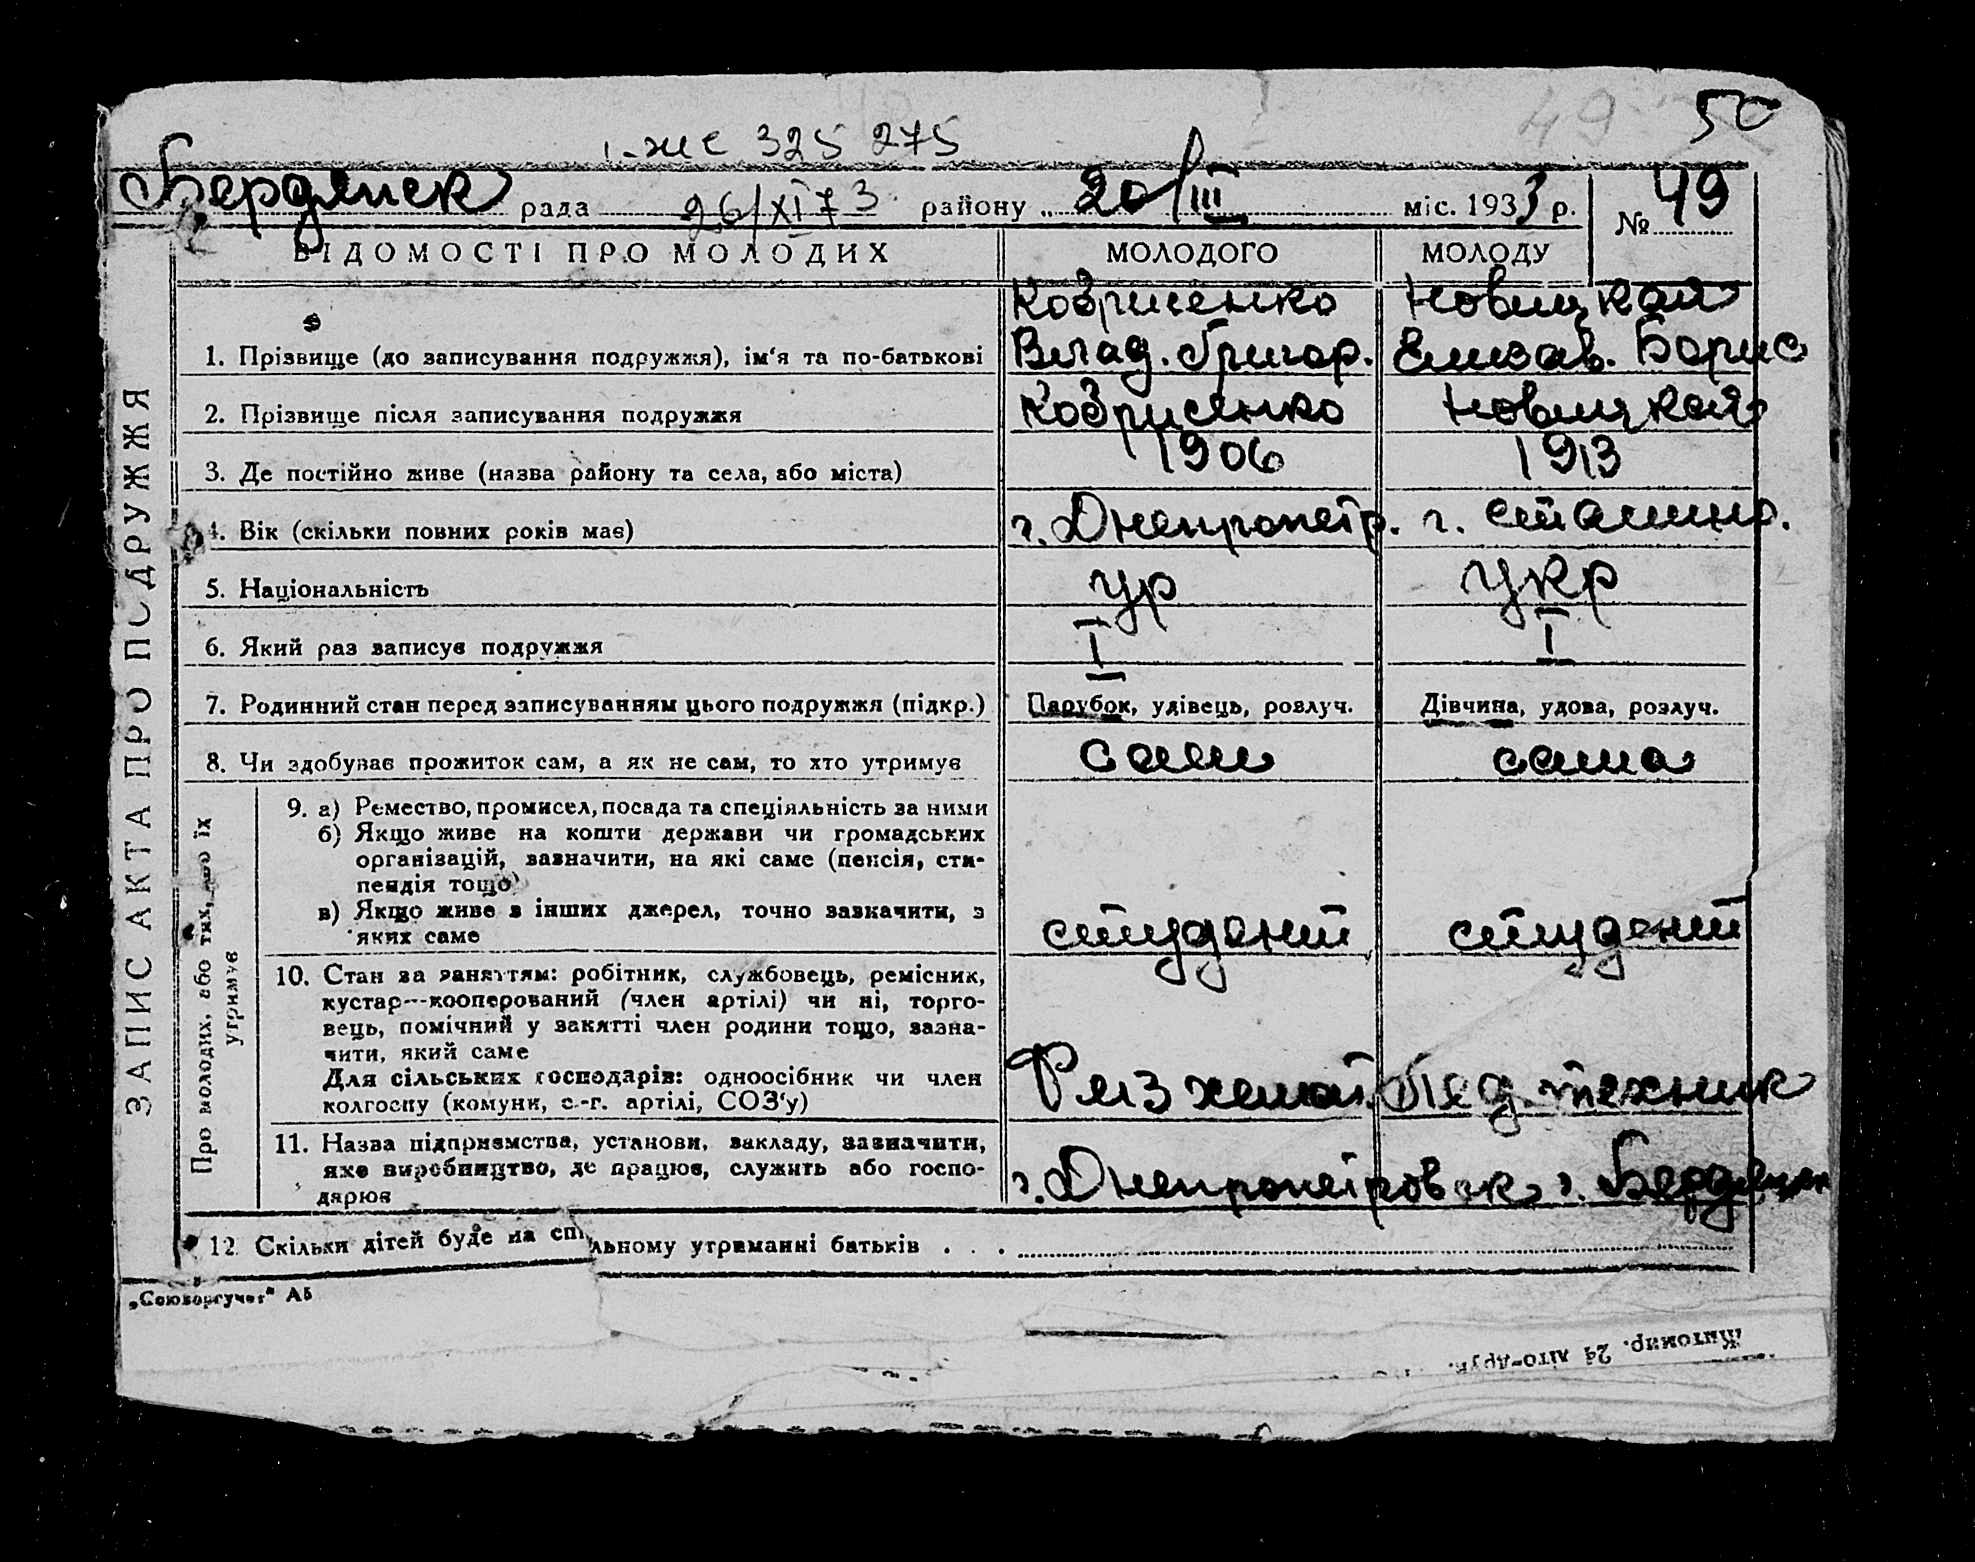 49 50
I-ЖС 325 275
Бердянск рада 26/XI 73 району „ 20/III міс. 1933 р. № 49
ВІДОМОСТІ ПРО МОЛОДИХ МОЛОДОГО МОЛОДУ
Новицкая
1. Прізвище (до записування подружжя), ім'я та по-батькові Влад. Григор. Елизав. Борис
2. Прізвище після записування подружжя Новицкая
3. Де постійно живе (назва району та села, або міста) 1906 1913
4. Вік (скільки повних років має) г. Днепропетр. г. Сталино.
5. Національність ур укр
6. Який раз записує подружжя I I
7. Родинний стан перед записуванням цього подружжя (підкр.) Парубок, удівець, розлуч. Дівчина, удова, розлуч.
8. Чи здобуває прожиток сам, а як не сам, то хто утримує сам сама
ЗАПИС АКТА ПРО ПОДРУЖЖЯ
Про молодих, або тих, що їх утримує
9. а) Ремество, промисел, посада та спеціяльність за ними
б) Якщо живе на кошти держави чи громадських
організацій, зазначити, на які саме (пенсія, сти-
пендія тощо)
в) Якщо живе з інших джерел, точно зазначити, з
яких саме студент студент
10. Стан за заняттям: робітник, службовець, ремісник,
кустар--кооперований (член артілі) чи ні, торго-
вець, помічний у занятті член родини тощо, зазна-
чити, який саме
Для сільських господарів: одноосібник чи член
колгоспу (комуни, с.-г. артілі, СОЗ'у) Физ хемат. Пед. техник
11. Назва підприємства, установи, закладу, зазначити,
яке виробництво, де працює, служить або госпо-
дарює г. Днепропетровск г. Бердянск
12. Скільки дітей буде на спільному утриманні батьків . . .
„Союзоргучет" А5
Житомир. 24 літо-друк.